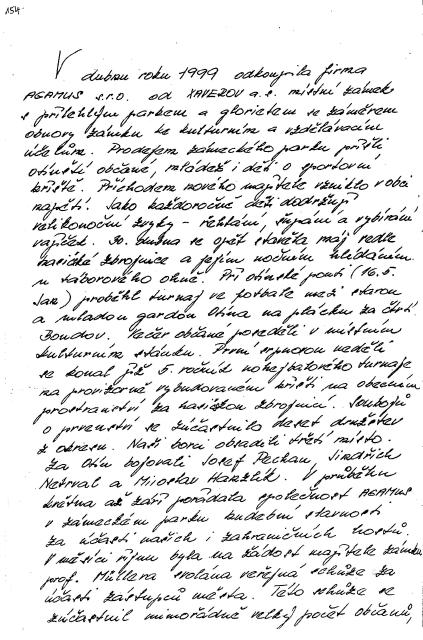 154
V dubnu roku 1999 odkoupila firma
AGAMUS s.r.o. od XAVEROV a.s. místní zámek
s přilehlým parkem a glorietem se záměrem
obnovy zámku ke kulturním a vzdělávacím
účelům. Prodejem zámeckého parku přišli
otínští občané, mládež i děti o sportovní
hřiště. Příchodem nového majitele vzniklo v obci
napětí. Jako každoročně děti dodržují
velikonoční zvyky - řehtání, šupání a vybírání
vajíček. 30. dubna se opět stavěla máj vedle
hasičské zbrojnice a jejím nočním hlídáním
u táborového ohně. Při otínské pouti (16. 5.
Jan) proběhl turnaj ve fotbale mezi starou
a mladou gardou Otína na plácku za čtvrtí
Boudov. Večer občané poseděli v místním
kulturním stánku. První srpnovou neděli
se konal již 5. ročník nohejbalového turnaje
na provizorně vybudovaném hřišti na obecním
prostranství za hasičskou zbrojnicí. Soubojů
o prvenství se zúčastnilo deset družstev
z okresu. Naši borci obsadili třetí místo.
Za Otín bojovali Josef Pechan, Jindřich
Netrval a Miroslav Harzlík. V průběhu
května až září pořádala společnost AGAMUS
v zámeckém parku hudební slavnosti
za účasti našich i zahraničních hostů.
V měsíci říjnu byla na žádost majitele zámku
prof. Müllera svolána veřejná schůze za
účasti zástupců města. Této schůze se
zúčastnil mimořádně velký počet občanů,